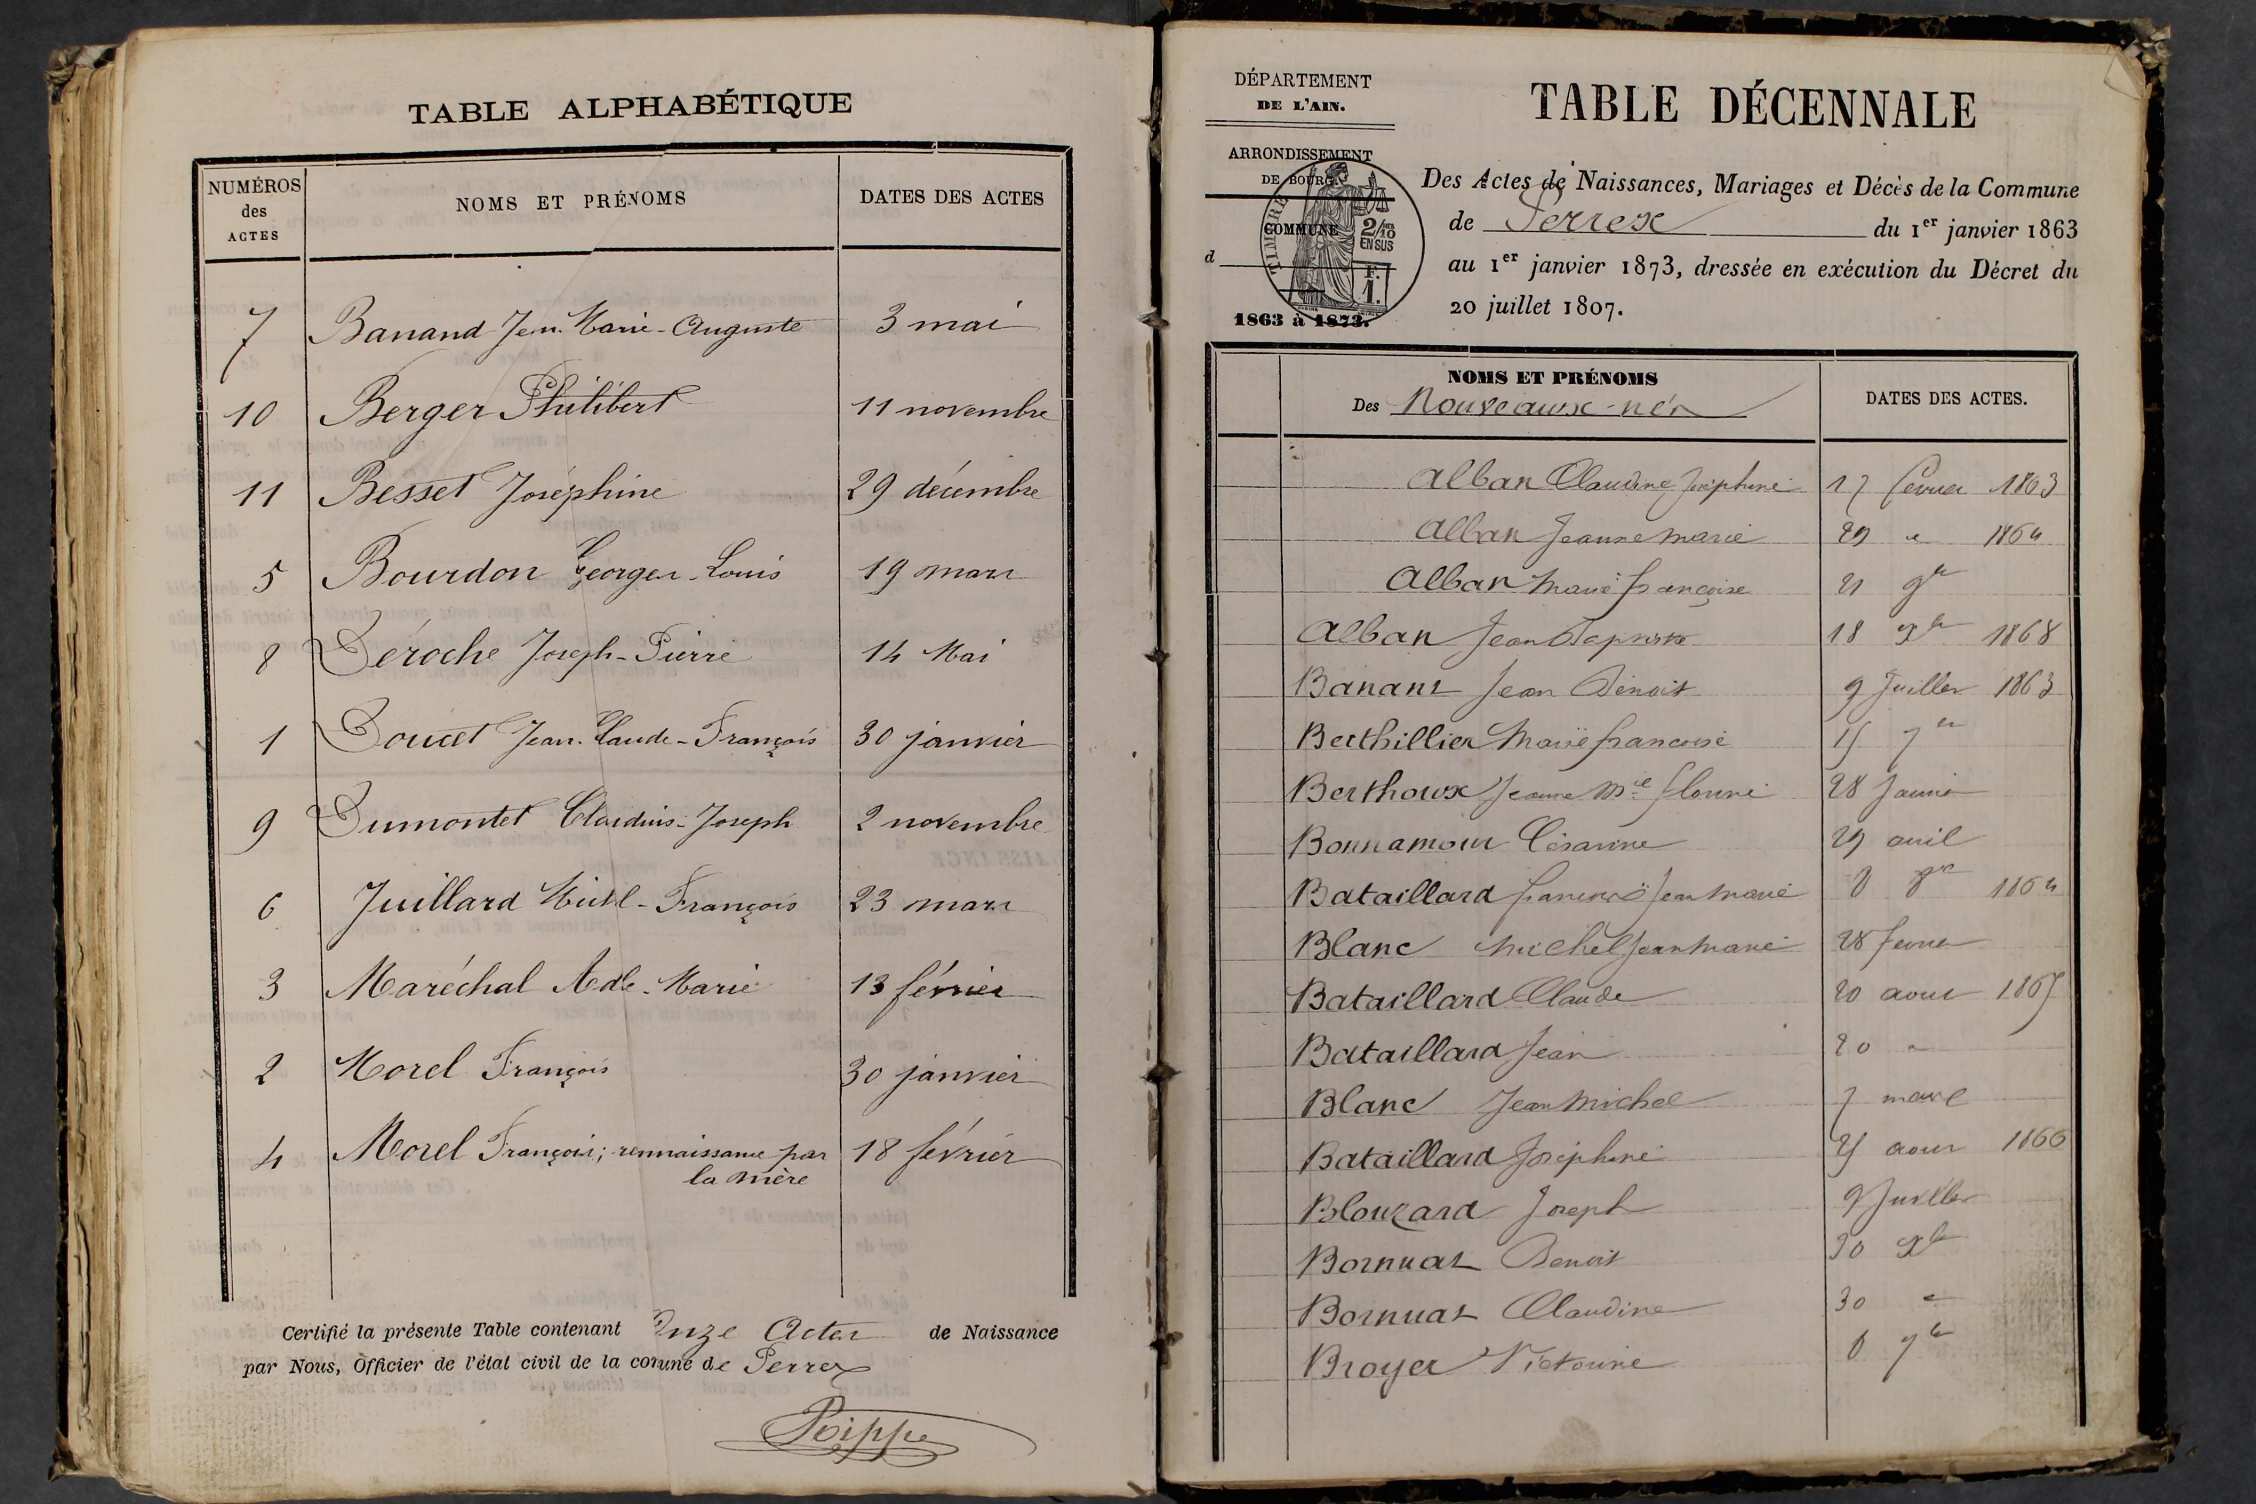 TABLE ALPHABÉTIQUE
NUMÉROS des ACTES NOMS ET PRÉNOMS DATES DES ACTES
7 Banand Jean-Marie-Auguste 3 mai
10 Berger Philibert 11 novembre
11 Besset Joséphine 29 décembre
5 Bourdon Georges-Louis 19 mars
8 Déroche Joseph-Pierre 14 Mai
1 Doucet Jean-Claude-François 30 janvier
9 Dumontet Claudius-Joseph 2 novembre
6 Juillard Michel-François 23 mars
3 Maréchal Adle-Marie 13 février
2 Morel François 30 janvier
4 Morel François; rennaissance par 18 février
la mère
Certifié la présente Table contenant Onze Actes de Naissance
par Nous, Officier de l'état civil de la comune de Perrex
Poippe
DÉPARTEMENT
DE L'AIN.
ARRONDISSEMENT
DE BOURG
COMMUNE
d
1863 à 1873.
TIMBRE
2/10
EN SUS
F.
1.
TABLE DÉCENNALE
Des Actes de Naissances, Mariages et Décès de la Commune
de Perrex du 1er janvier 1863
au 1er janvier 1873, dressée en exécution du Décret du
20 juillet 1807.
NOMS ET PRÉNOMS
Des Nouveaux-nés DATES DES ACTES.
Alban Claudine Joséphine 17 fevrier 1863
Alban Jeanne Marie 29 " 1864
Alban Marie françoise 21 9bre
Alban Jean Baptiste 18 Xbre 1868
Banant Jean Benoit 9 Juillet 1863
Berthillier Marie francoise 15 7bre
Berthoux Jeanne Mie florine 28 Janvier
Bonnamour Césarine 29 avril
Bataillard francoise Jean Marie 8 8bre 1864
Blanc Michel Jean Marie 28 fevrier
Bataillard Claude 20 aout 1865
Bataillard Jean 20 "
Blanc Jean Michel 7 mars
Bataillard Joséphine 25 aout 1866
Blouzard Joseph 9 Juillet
Bornuat Benoit 30 Xbre
Bornuat Claudine 30 "
Broyer Victorine 7bre